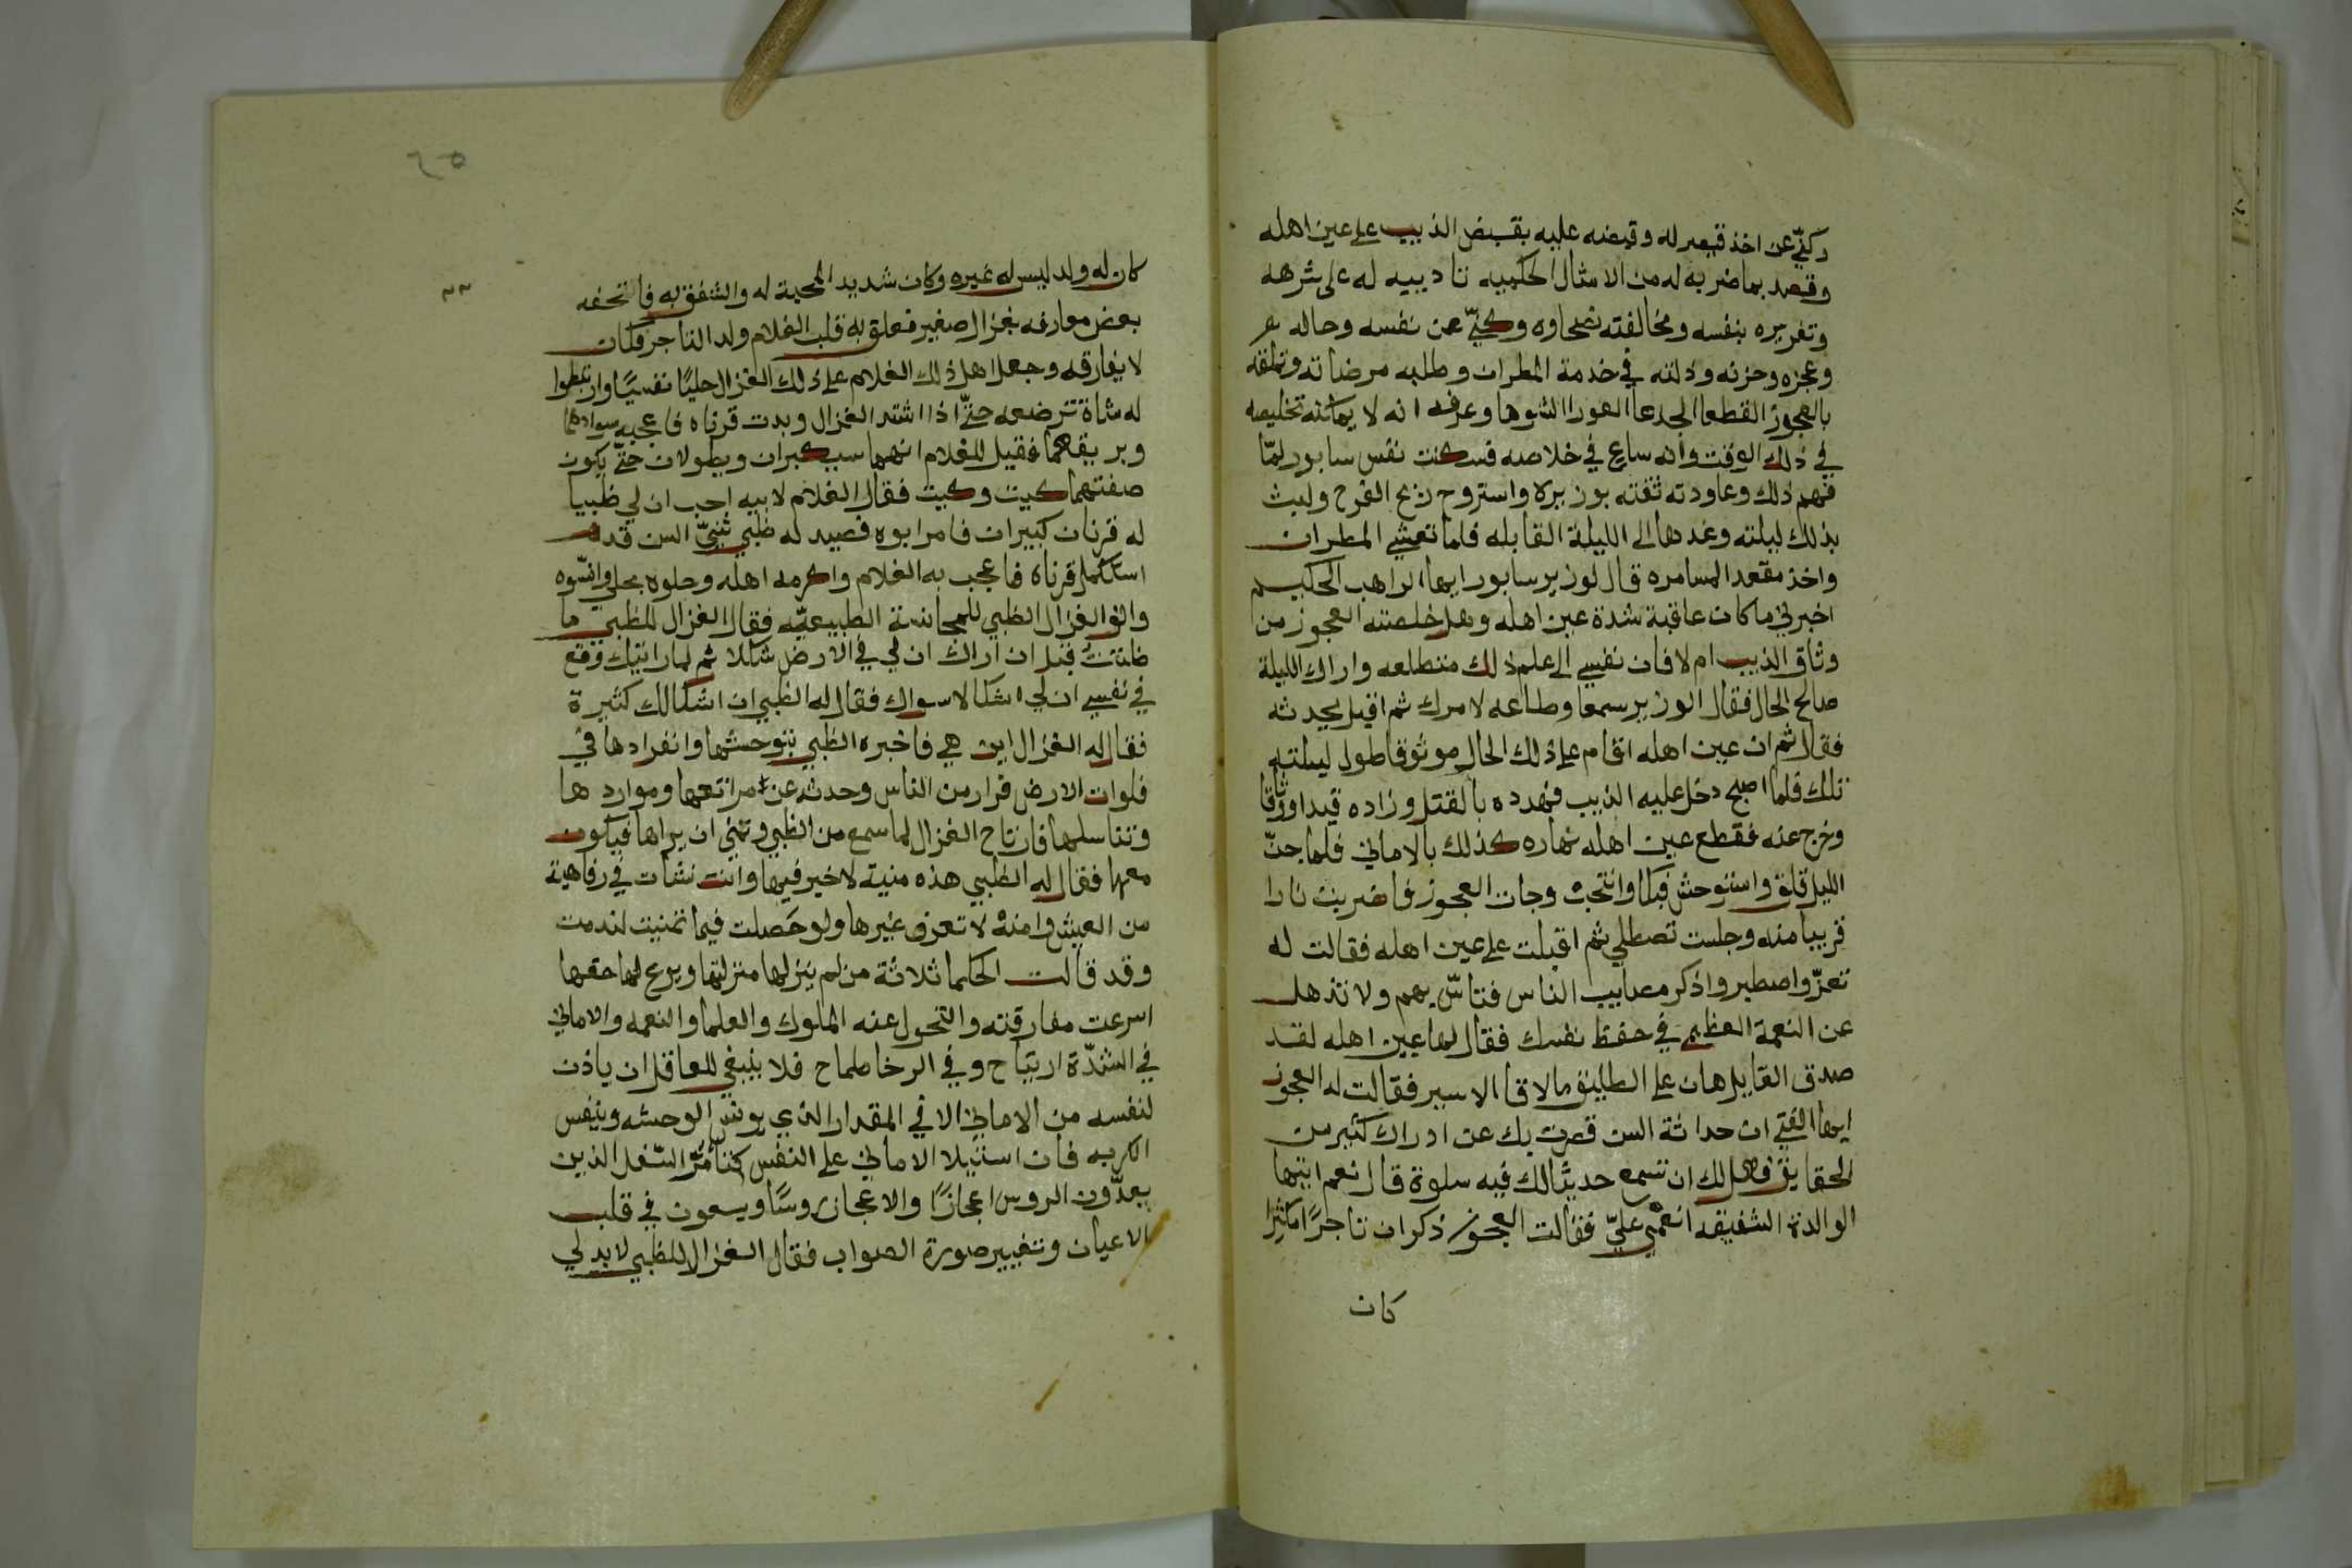 وكنّي عن اخذ قيصر له وقبضه عليه بقبض الذيب على عين اهله
وقصد بما ضربه له من الامثال الحكميه تاديبيه له على شرهه
وتغريره بنفسه ومخالفته نصحاوه وكنّي عن نفسه وحاله
وعجزه وحزنه وذلته في خدمة المطران وطلبه مرضاته وتملقه
بالعجوز القطعا الجدعا العورا الشوها وعرفه انه لا يمكنه تخليصه
في ذلك الوقت وانه ساع في خلاصه فسكنت نفس سابور لمّا
فهم ذلك وعاودته ثقته بوزيره واستروح ريح الفرج ولبث
بذلك ليلته وغدها الى الليلة القابله فلما تعشي المطران
واخذ مقعد المسامره قال لوزير سابور ايها الراهب الحكيم
اخبرني ما كان عاقبة شدة عين اهله وهل خلصته العجوز من
وثاق الذيب ام لا فان نفسي الى علم ذلك متطلعه واراك الليلة
صالح الحال فقال الوزير سمعا وطاعه لامرك ثم اقبل يحدثه
فقال ثم ان عين اهله اقام على ذلك الحال موثوقا طول ليلته
تلك فلما اصبح دخل عليه الذيب فهدده بالقتل وزاده قيدا ووثاقا
وخرج عنه فقطع عين اهله نهاره كذلك بالاماني فلما جنّ
الليل قلق واستوحش فبكا وانتحب وجات العجوز فاضرمت نارا
قريبا منه وجلست تصطلي ثم اقبلت على عين اهله فقالت له
تعزّ واصطبر واذكر مصايب الناس فتاسّ بهم ولا تذهل
عن النعمة العظمي في حفظ نفسك فقال لها عين اهله لقد
صدق القايل هان على الطليق ما لاقا الاسير فقالت له العجوز
ايها الفتي ان حداثة السن قصرت بك عن ادراك كثير من
الحقايق فهل لك ان تسمع حديثا لك فيه سلوة قال نعم ايتها
الوالدة الشفيقه انعمي عليّ فقالت العجوز ذكر ان تاجرًا مكثرا
كان
٦٥
كان له ولد ليس له غيره وكان شديد المحبة له والشفق به فاتحفه
بعض معارفه بغزال صغير فعلق به قلب الغلام ولد التاجر فكان
لا يفارقه وجعل اهل ذلك الغلام على ذلك الغزال حليًا نفسيًا وارتبطوا
له شاة ترضعه حتّي اذا اشتد الغزال وبدت قرناه فاعجبه سوادهما
وبريقهما فقيل للغلام انهما سيكبران ويطولان حتّي يكون
صفتهما كيت وكيت فقال الغلام لابيه احب ان لي ظبيا
له قرنان كبيران فامر ابوه فصيد له ظبي ثنيّ السن قد
استكمل قرناه فاعجب به الغلام واكرمه اهله وحلوه بحلي وانسوه
والف الغزال الظبي للمجانسة الطبيعيّه فقال الغزال للظبي ما
ظننت قبل ان اراك ان لي في الارض شكلا ثم لما رايتك وقع
في نفسي ان لي اشكالا سواك فقال له الظبي ان اشكالك كثيرة
فقال له الغزال اين هي فاخبره الظبي بتوحشها وانفرادها في
فلوات الارض فرار من الناس وحدثه عن مراتعها ومواردها
وتناسلها فارتاح الغزال لما سمع من الظبي وتمني ان يراها فيكون
معها فقال له الظبي هذه منية لا خير فيها وانت نشات في رفاهية
من العيش وامنة لا تعرف غيرها ولو حصلت فيما تمنيت لندمت
وقد قالت الحكما ثلاثة من لم ينزلها منزلتها ويرع لها حقها
اسرعت مفارقته والتحول عنه الملوك والعلما والنعمه والاماني
في الشدّة ارتياح وفي الرخا طماح فلا ينبغي للعاقل ان ياذن
لنفسه من الاماني الا في المقدار الذي يونس الوحشه وينفس
الكربه فان استيلا الاماني على النفس كتأمّر السّفل الذين
يعدّون الروس اعجازًا والاعجاز روسًا ويسعون في قلب
الاعيان وتغيير صورة الصواب فقال الغزال للظبي لا بد لي